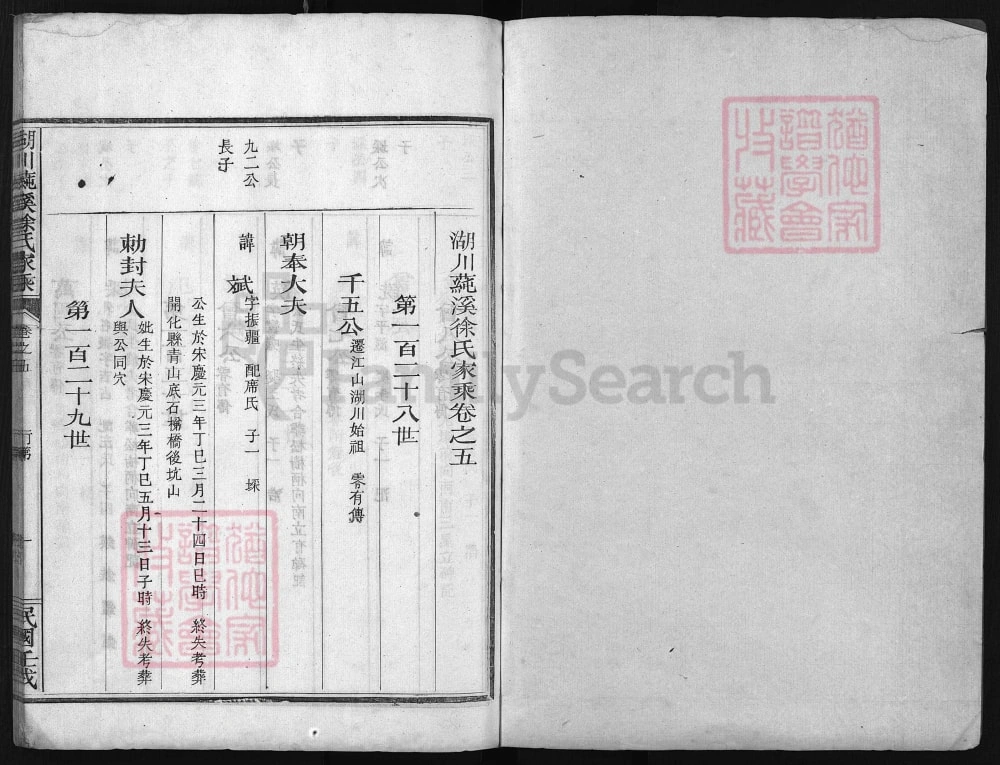 湖川蓴溪徐氏家乘卷之五
第一百二十八世
千五公遷江山湖川始祖 零有傳
朝奉大夫
九二公
長子
諱 斌字振疆 配席氏 子一 琛
公生於宋慶元三年丁巳三月二十四日巳時 終失考葬
開化縣青山底石橋後坑山
勅封夫人
妣生於宋慶元三年丁巳五月十三日子時 終失考葬
與公同穴
第一百二十九世
湖川蓴溪徐氏家乘 卷之五 行第 一 民國壬戌
猶他家
譜學會
收藏
猶他家
譜學會
收藏
FamilySearch